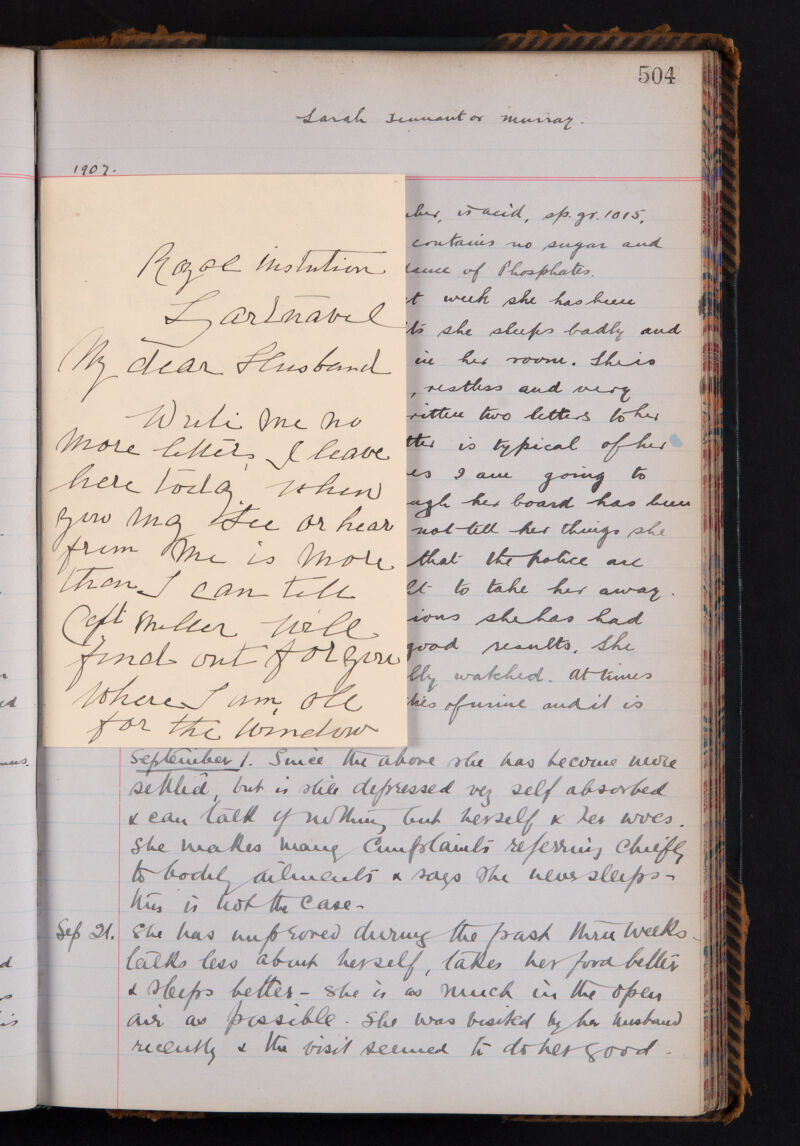 504
Sarah Tennant or Murray.
1907.
Royal Instution
Gartnavel
My dear Husband
Write me no
more letters I leave
here today when
you may See or hear
from me is more
than I can tell
Capt Miller will
find out for you
where I am all
for the window
is acid, sp. gr. 1015,
contains no sugar and
of Phosphates.
week she has been
she sleeps badly and
in her room. She is
, restless and very
two letters to her
is typical of her
I am going to
her board has been
not tell her things she
that the police are
to take her away.
she has had
good results. She
watched. At times
of urine and it is
September 1. Since the above she has become more
settled, but is still depressed very self absorbed
& can talk of nothing but herself & her woes.
She makes many complaints referring chiefly
to bodily ailments & says she never sleeps -
this is not the case -
Sep 21. She has improved during the past three weeks -
talks less about herself, takes her food better
& sleeps better - She is as much in the open
air as possible. She was visited by her husband
recently & the visit seemed to do her good -